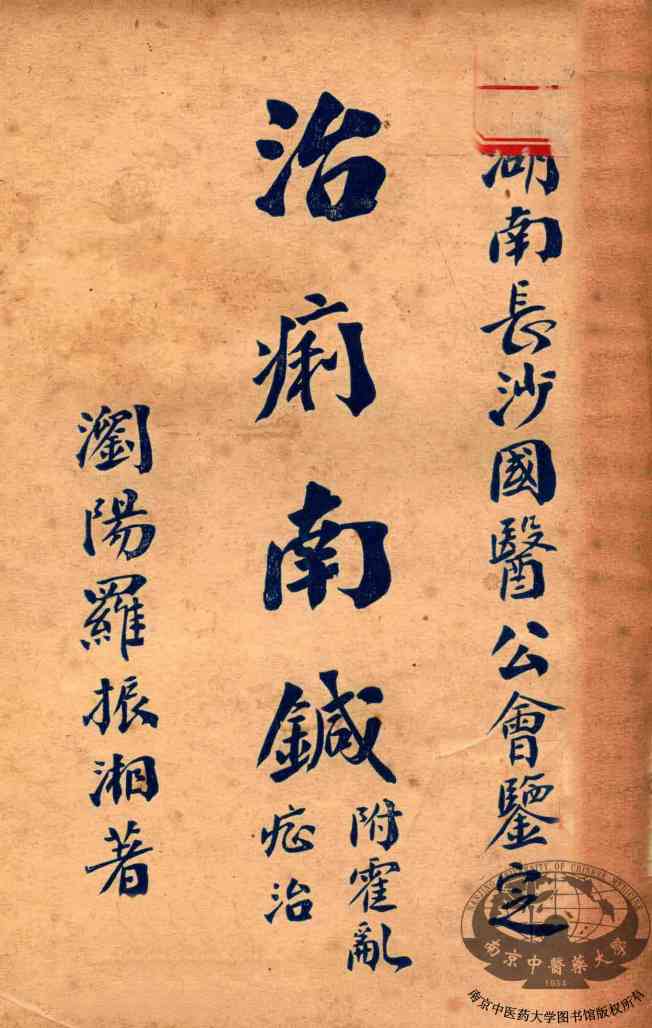 湖南長沙國醫公會鑒定
治痢南鍼
附霍亂
症治
瀏陽羅振湘著
南京中醫藥大學
1954
南京中医药大学图书馆版权所有